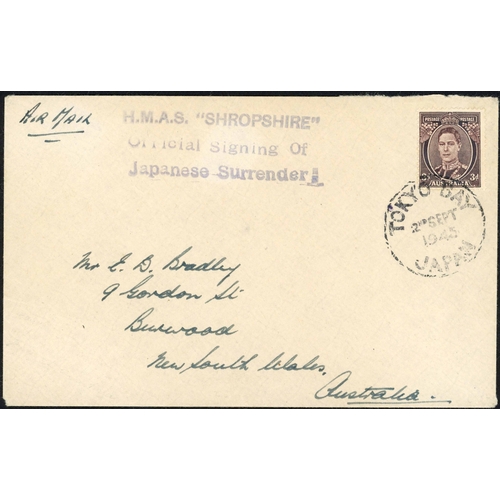 Air Mail
H.M.A.S. "SHROPSHIRE"
Official Signing Of
Japanese Surrender!
POSTAGE POSTAGE
3d
AUSTRALIA
TOKYO BAY
2ND SEPT
1945
JAPAN
Mr E. D. Bradley
9 Gordon St
Burwood
New South Wales.
Australia.